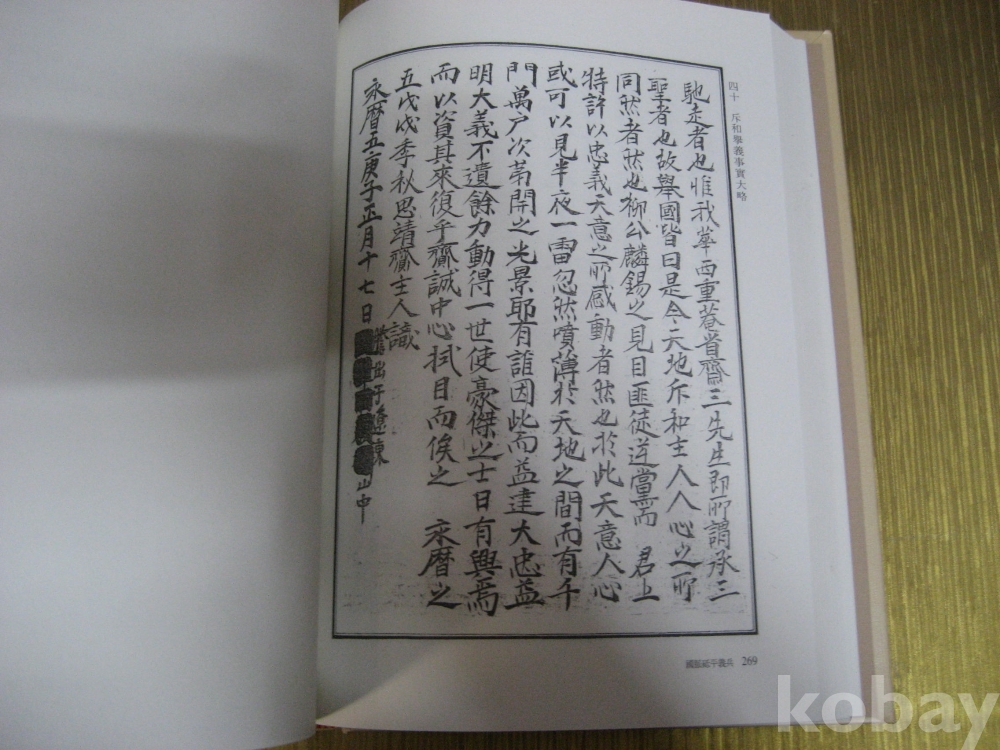 四十 斥和擧義事實大略
馳走者也惟我華西重菴省齋三先生卽所謂承三
聖者也故擧國皆曰是今天地斥和主人人心之所
同然者然也柳公麟錫之見目匪徒逆當而 君上
特許以忠義天意之所感動者然也於此天意人心
或可以見半夜一雷忽然噴薄於天地之間而有千
門萬戶次苐開之光景耶有誰因此而益建大忠益
明大義不遺餘力動得一世使豪傑之士日有興焉
而以資其來復乎齎誠中心拭目而俟之 永曆之
五戊戌季秋思靖齋主人識
永曆五庚子正月十七日
出于遼東
山中
269
kobay